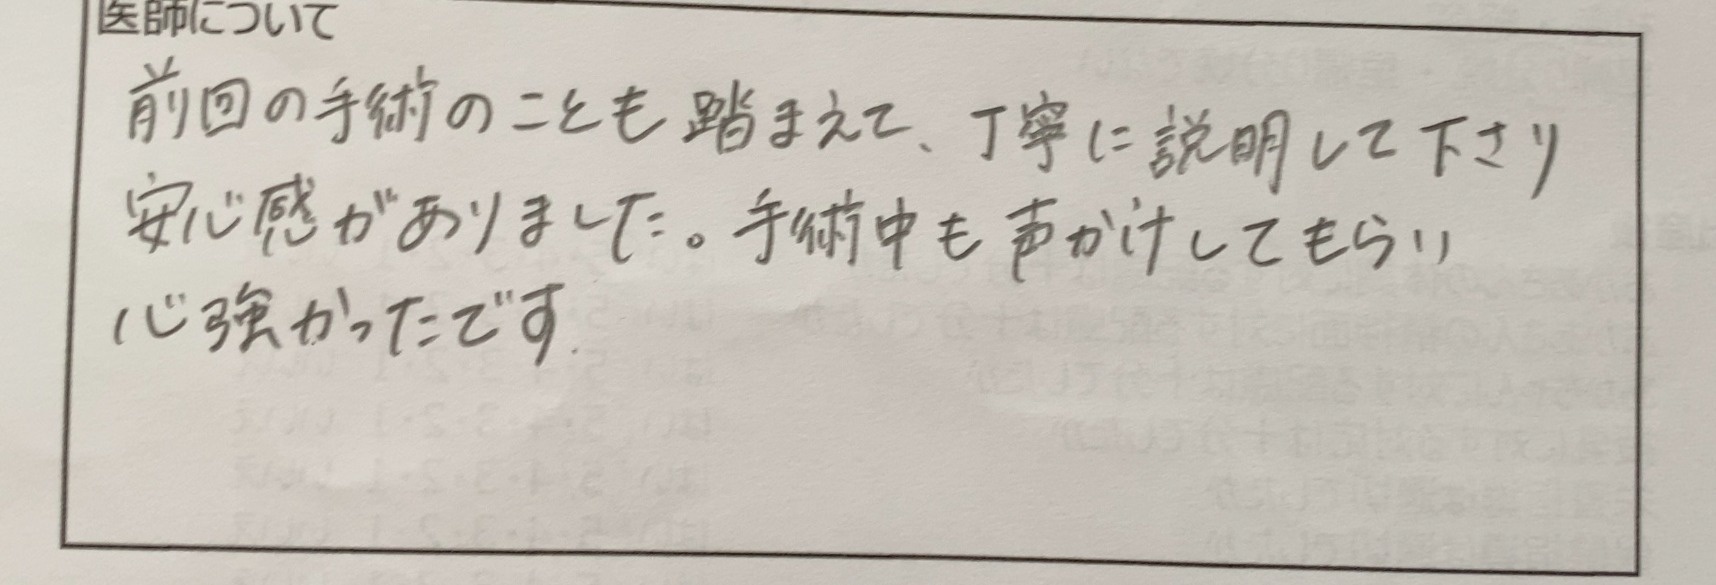 医師について
前回の手術のことも踏まえて、丁寧に説明して下さり
安心感がありました。手術中も声かけしてもらい
心強かったです.